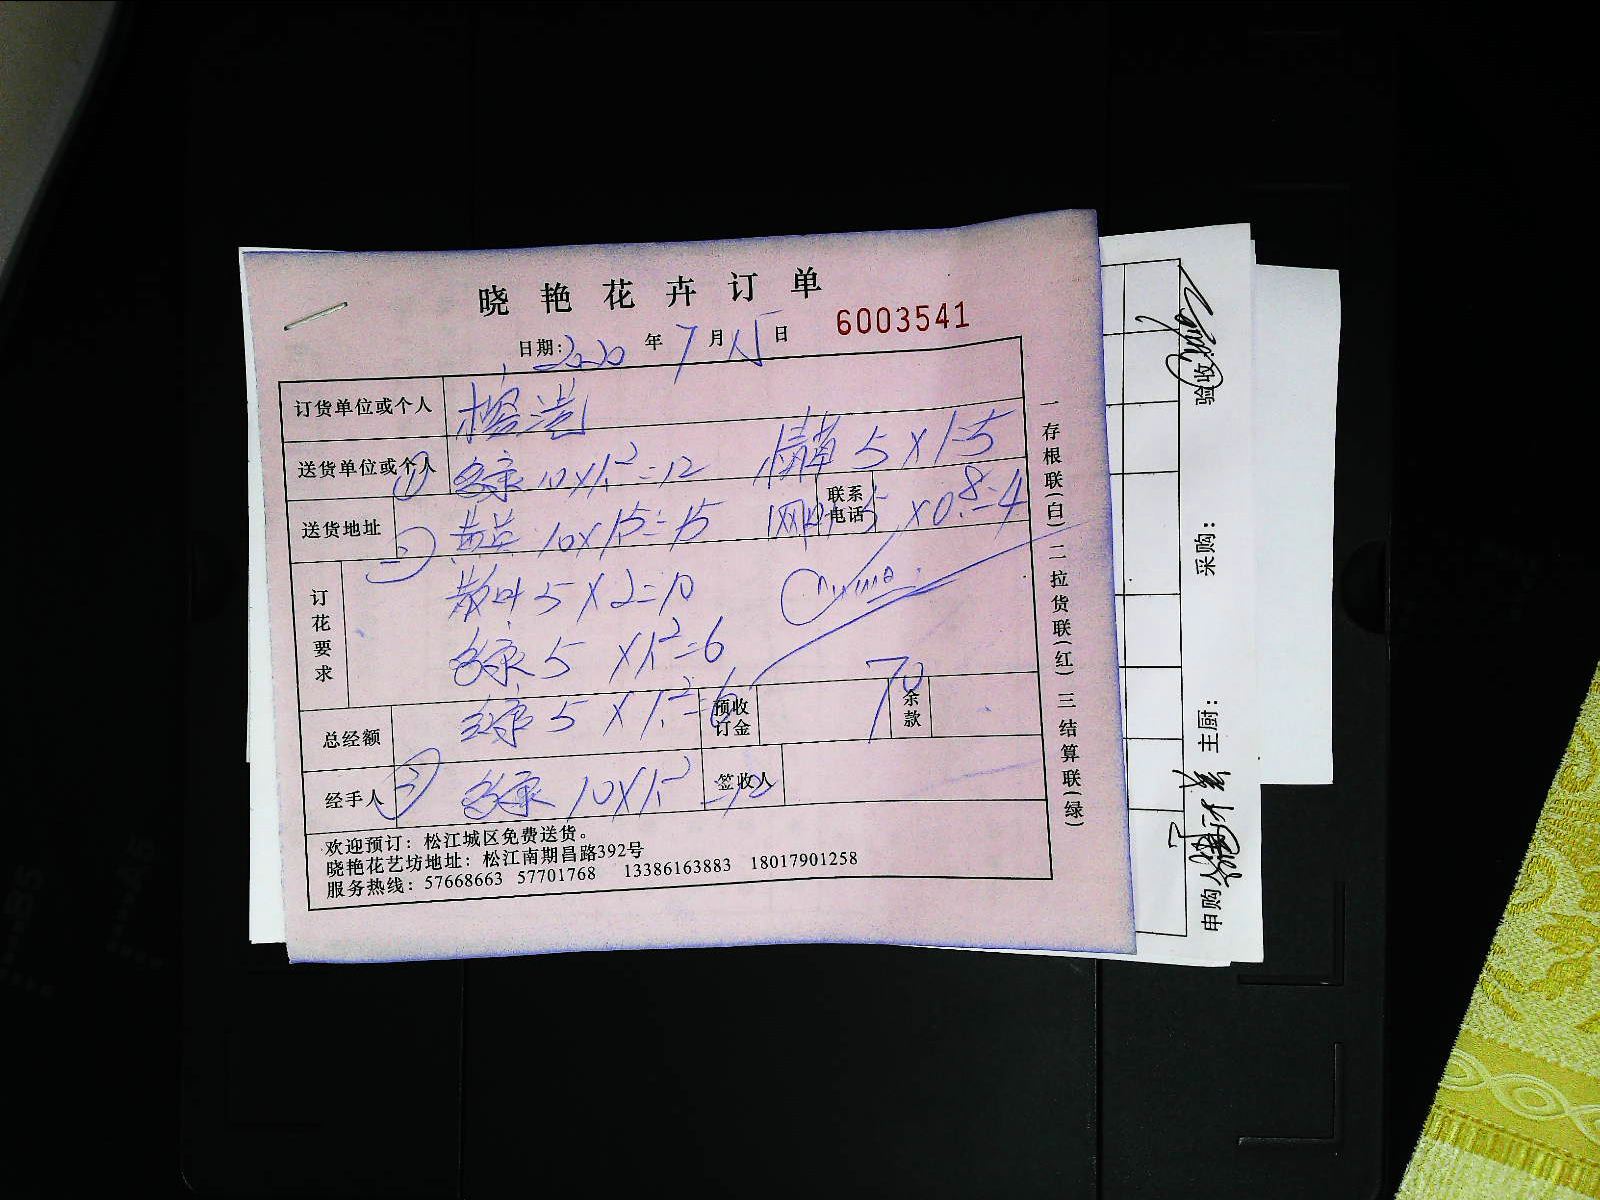 晓艳花卉订单
日期: 2020 年 7 月 15 日 6003541
订货单位或个人
送货单位或个人 10×1.2=12 5×1=5
送货地址 黄英 10×1.5=15 联系电话 5×0.8=4
订花要求
散叶 5×2=10
5×1.2=6
总经额 5×1.2=6 预收订金 70 余款
经手人 10×1.2=12 签收人
欢迎预订: 松江城区免费送货。
晓艳花艺坊地址: 松江南期昌路392号
服务热线: 57668663 57701768 13386163883 18017901258
一存根联(白) 二拉货联(红) 三结算联(绿)
验收
采购:
主厨:
申购人